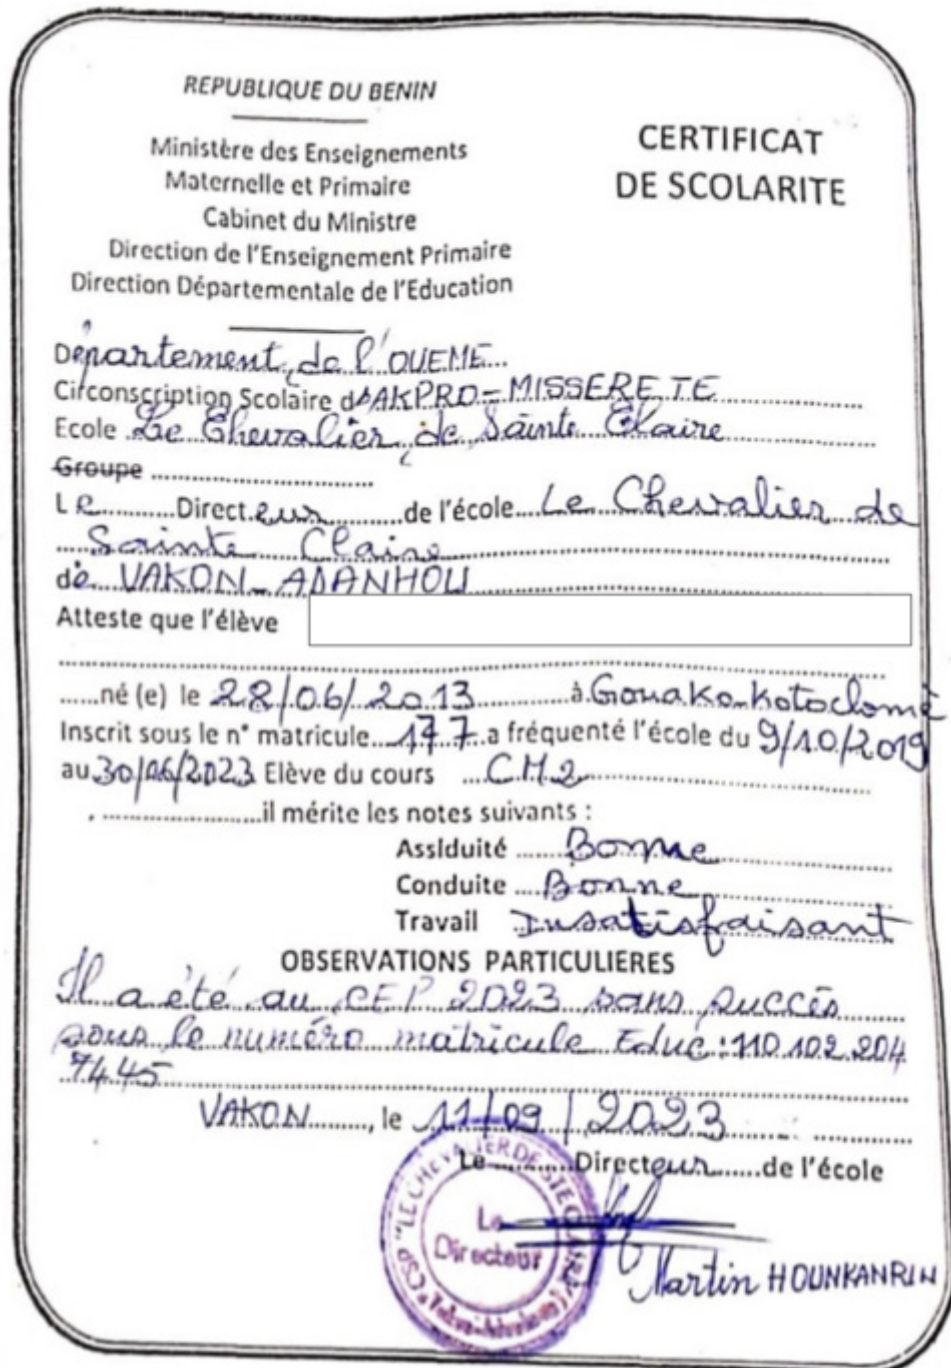 REPUBLIQUE DU BENIN
Ministère des Enseignements
Maternelle et Primaire
Cabinet du Ministre
Direction de l'Enseignement Primaire
Direction Départementale de l'Education
CERTIFICAT
DE SCOLARITE
Département de l'OUEME
Circonscription Scolaire d'AKPRO-MISSERETE
Ecole Le Chevalier de Sainte Claire
Groupe
Le Directeur de l'école Le Chevalier de
Sainte Claire
de VAKON-ADANHOU
Atteste que l'élève
né (e) le 28/06/2013 à Gouako-kotoclomè
Inscrit sous le n° matricule 177 a fréquenté l'école du 9/10/2019
au 30/06/2023 Elève du cours CM2
il mérite les notes suivants :
Assiduité Bonne
Conduite Bonne
Travail Insatisfaisant
OBSERVATIONS PARTICULIERES
Il a été au CEP 2023 sans succès
sous le numéro matricule Educ : 110 102 204
7445
VAKON, le 11/09/2023
Le Directeur de l'école
CSP "LE CHEVALIER DE STE CLAIRE"
Le
Directeur
Martin HOUNKANRIN